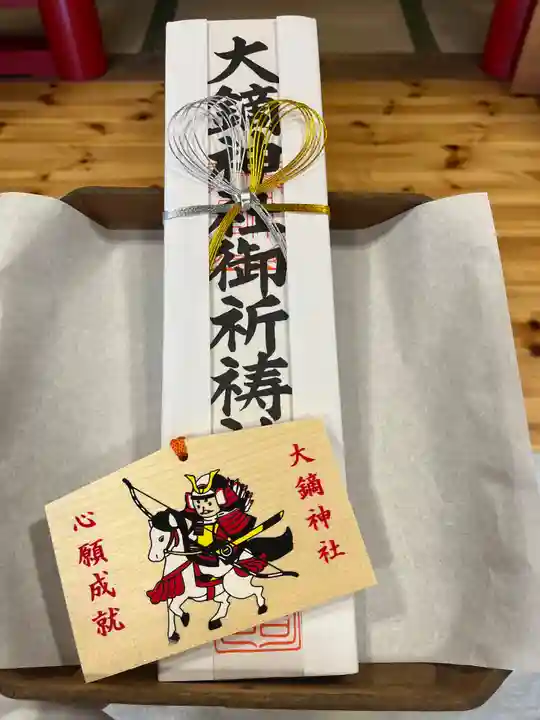 大鏑神社御祈祷神
大鏑神社
心願成就